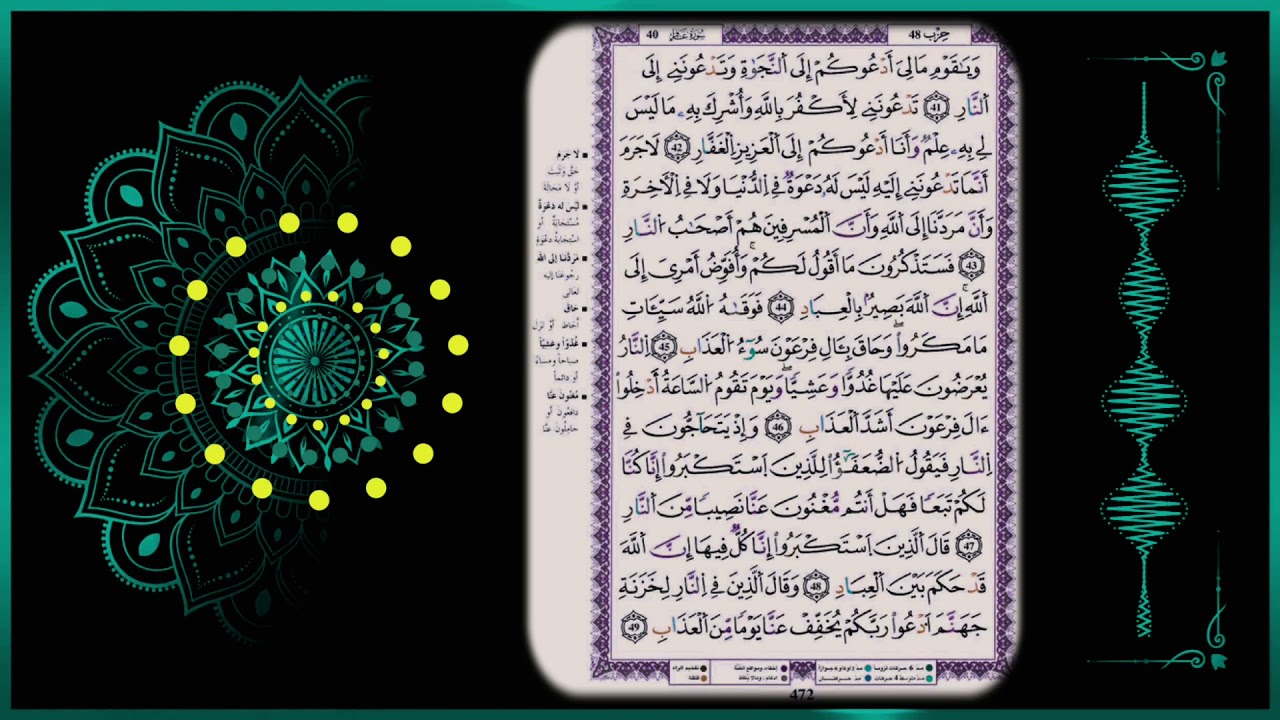 حِزْبٌ 48
سُورَةُ غَافِرٍ 40
وَيَٰقَوْمِ مَا لِيَ أَدْعُوكُمْ إِلَى ٱلنَّجَوٰةِ وَتَدْعُونَنِي إِلَى
ٱلنَّارِ ٤١ تَدْعُونَنِي لِأَكْفُرَ بِٱللَّهِ وَأُشْرِكَ بِهِۦ مَا لَيْسَ
لِي بِهِۦ عِلْمٌ وَأَنَا أَدْعُوكُمْ إِلَى ٱلْعَزِيزِ ٱلْغَفَّارِ ٤٢ لَا جَرَمَ
أَنَّمَا تَدْعُونَنِي إِلَيْهِ لَيْسَ لَهُۥ دَعْوَةٌ فِي ٱلدُّنْيَا وَلَا فِي ٱلْأَخِرَةِ
وَأَنَّ مَرَدَّنَا إِلَى ٱللَّهِ وَأَنَّ ٱلْمُسْرِفِينَ هُمْ أَصْحَٰبُ ٱلنَّارِ
٤٣ فَسَتَذْكُرُونَ مَا أَقُولُ لَكُمْ وَأُفَوِّضُ أَمْرِي إِلَى
ٱللَّهِ إِنَّ ٱللَّهَ بَصِيرٌ بِٱلْعِبَادِ ٤٤ فَوَقَىٰهُ ٱللَّهُ سَيِّـَٔاتِ
مَا مَكَرُوا۟ وَحَاقَ بِـَٔالِ فِرْعَوْنَ سُوٓءُ ٱلْعَذَابِ ٤٥ ٱلنَّارُ
يُعْرَضُونَ عَلَيْهَا غُدُوًّا وَعَشِيًّا وَيَوْمَ تَقُومُ ٱلسَّاعَةُ أَدْخِلُوا۟
ءَالَ فِرْعَوْنَ أَشَدَّ ٱلْعَذَابِ ٤٦ وَإِذْ يَتَحَآجُّونَ فِي
ٱلنَّارِ فَيَقُولُ ٱلضُّعَفَٰٓؤُا۟ لِلَّذِينَ ٱسْتَكْبَرُوا۟ إِنَّا كُنَّا
لَكُمْ تَبَعًا فَهَلْ أَنتُم مُّغْنُونَ عَنَّا نَصِيبًا مِّنَ ٱلنَّارِ
٤٧ قَالَ ٱلَّذِينَ ٱسْتَكْبَرُوا۟ إِنَّا كُلٌّ فِيهَا إِنَّ ٱللَّهَ
قَدْ حَكَمَ بَيْنَ ٱلْعِبَادِ ٤٨ وَقَالَ ٱلَّذِينَ فِي ٱلنَّارِ لِخَزَنَةِ
جَهَنَّمَ ٱدْعُوا۟ رَبَّكُمْ يُخَفِّفْ عَنَّا يَوْمًا مِّنَ ٱلْعَذَابِ ٤٩
لا جرم
حَقَّ وَثَبَتَ
أوْ لا مَحَالَةَ
ليْسَ له دعوةٌ
مُسْتَجَابَةٌ أو
اسْتِجَابَةُ دَعْوَةٍ
مَرَدَّنا إلى الله
رجُوعَنا إليه
تَعالى
حَاقَ
أحَاطَ أوْ نَزلَ
غُدُوّاً وعَشِيّاً
صباحاً ومساءً
أو دائماً
مُغْنُونَ عَنَّا
دافِعُونَ أو
حامِلُونَ عَنَّا
مدّ 6 حركات لزوماً
مدّ 2 أو 4 أو 6 جوازاً
إخفاء، ومواقع الغُنَّة
تفخيم الراء
مدّ حركتان
قلقلة
472